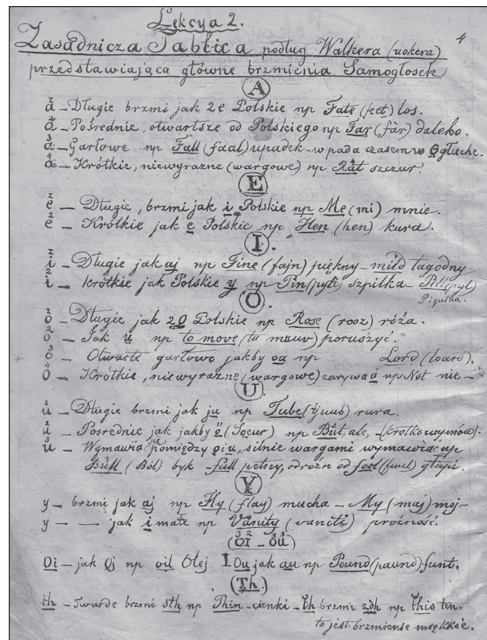 Lekcya 2.
4
Zasadnicza Tablica podług Walkera (uokera)
przedstawiająca główne brzmienia Samogłosek
A
á – Długie brzmi jak 2e Polskie np Fate los.
á – Pośrednie, otwartsze od Polskiego np Far (fár) daleko.
á – Garłowe np Fall (faal) upadek wpada czasem w O głuche.
á – Krótkie, niewyrazne (wargowe) np Rat szczur
E
é – Długie, brzmi jak i Polskie np Me (mi) mnie.
é – Krótkie jak e Polskie np Hen (hen) kura.
I.
i – Długie jak aj np Fine (fajn) piękny – mild łagodny
i – krótkie jak Polskie y np Pin (pyn) szpilka – Pill (pyl)
Pigułka.
O
o – Długie jak 2o Polskie np Rose (rooz) róża.
o – Jak u np to move (tu muuv) poruszyć.
o – Otwarte garłowe jakby oa np Lord (loard).
o – Krótkie, niewyrazne (wargowe) zarywa a np Not nie –
U
u – Długie brzmi jak ju np Tube rura.
u – Posrednie jak jakby ö (Soeur) np But, ale, (krótko wymów).
u – Wymawia pomiędzy o i u, silnie wargami wymawia np
Bull (Bol) byk – full pełny, odrózn od fool (fuul) głupi.
Y
y – brzmi jak aj np Fly (flay) mucha – My (maj) mój –
y – — jak i małe np Vanity (vaniti) próżność.
(oi – ou)
Oi – jak oj np oil Olej I Ou jak au np Pound (paund) funt.
(Th)
th – Twarde brzmi sth np Thin – cienki – th brzmi zdh np this ten.
to jest brzmienie miękkie.